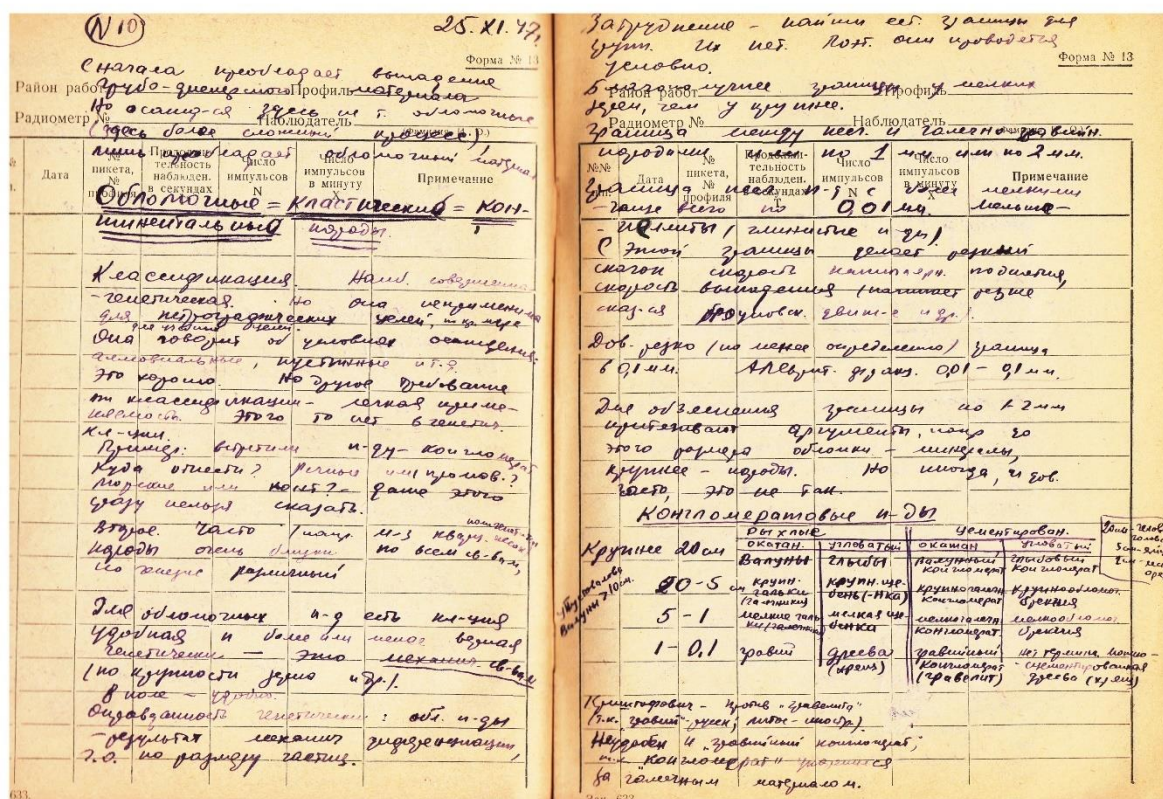 N 10
25. XI. 47.
Форма № 13
Сначала преобладает выпадение
Район работ Профиль
грубо-дисперсного материала
Но осажд-ся здесь не т. обломочные
Радиометр № Наблюдатель
(здесь более сложный процесс),
лишь преобладает обломочный материал
Дата
№ пикета, № профиля
Продолжительность наблюден. в секундах
Число импульсов N
Число импульсов в минуту
Примечание
Обломочные = кластические = кон-
тинентальные породы.
Классификация. Наиб. совершенна
- генетическая. Но она неприменима
для петрографических целей,
Она говорит об условиях осаждения.
аллювиальные, пустынные и т.д.
Это хорошо. Но другое требование
к классификации - легкая приме-
няемость. Этого то нет в генетич.
кл-ции.
Пример: встретили п-ду - конгломерат
Куда отнести? Речный или пролюв.?
Морские или конт.? - даже этого
сразу нельзя сказать.
Второе. Часто (напр. м-з кварц. песок
породы очень близки по всем св-вам,
но генезис различный
Для обломочных п-д есть кл-ция
удобная и более или менее верная
генетически — это механич. св-вам
(по крупности зерна и др.).
В поле - удобно.
Оправданность генетически: обл. п-ды
- результат механич дифференциации,
т.о. по размеру частиц.
633.
Затруднение - найти ест. границы для
групп. Их нет. Поэт. они проводятся
условно.
Форма № 13
Район работ Профиль
зерен, чем у крупнее.
Радиометр № Наблюдатель
Граница между песч. и галечно-гравийн.
породами по 1 мм или по 2 мм.
Дата
№ пикета, № профиля
Продолжительность наблюден. в секундах
Число импульсов N
Число импульсов в минуту
Примечание
Граница песч. п-д с более мелкими
- чаще всего по 0,01 мм. Меньше -
- пелиты (глинистые п-ды)
С этой границы делает резкий
скачок скорость капиллярн. поднятия,
скорость выпадения (начинает резче
сказ-ся броуновск. движ-е и др.).
Дов. резко (но менее определенно) граница
в 0,1 мм. Алеврит. фракц. 0,01 - 0,1 мм.
Для объяснения границы по 1-2 мм
притягивают аргументы, напр. до
этого размера обломки - минералы,
крупнее - породы. Но иногда, и дов.
часто, это не так.
Конгломератовые п-ды
Рыхлые Цементирован.
окатан. угловатый окатан угловатый
20 см - голова
Крупнее 20 см Валуны глыбы валунный конгломерат глыбовый конгломерат
Валуны > 10 см.
20-5 см крупн. гальки (галечники) крупн. ще-бень (-нка) крупногалечн конгломерат крупнообломоч. брекчия
5 - 1 мелкие галь-ки (галечник) мелкая ще-бенка мелкогалечн конгломерат мелкообломоч. брекчия
1 - 0,1 гравий дресва (хрящ) гравийный конгломерат (гравелит) нет термина можно - сцементированная дресва (хрящ)
Криштофович - против "гравелита"
(т.к. "гравий" - русск, литос - иностр.)
Неудобен и "гравийный конгломерат",
т.к. "конгломерат" укоренился
за галечным материалом.